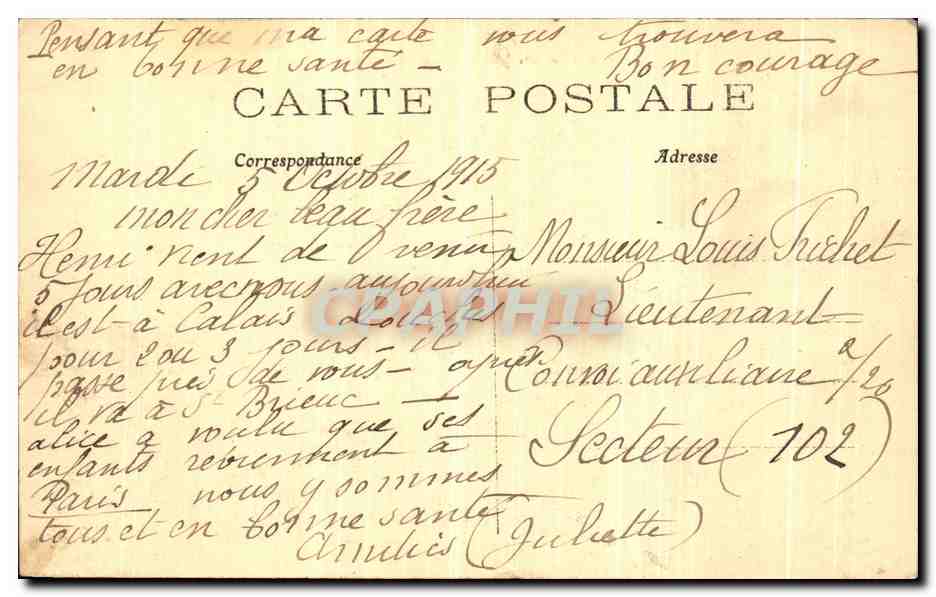 Pensant que ma carte vous trouvera
en bonne santé - Bon courage
CARTE POSTALE
Correspondance
Mardi 5 Octobre 1915
mon cher beau frère
Henri vient de venir
5 jours avec nous aujourd'hui
il est à Calais
pour 2 ou 3 jours - il
passe près de vous - après
il va à St Brieuc -
alice a voulu que ses
enfants reviennent à
Paris nous y sommes
tous et en bonne santé
Amitiés (Juliette)
Adresse
Monsieur Louis Trichet
Lieutenant
Convoi auxiliaire 2/20
Secteur (102)
CPAPHIL